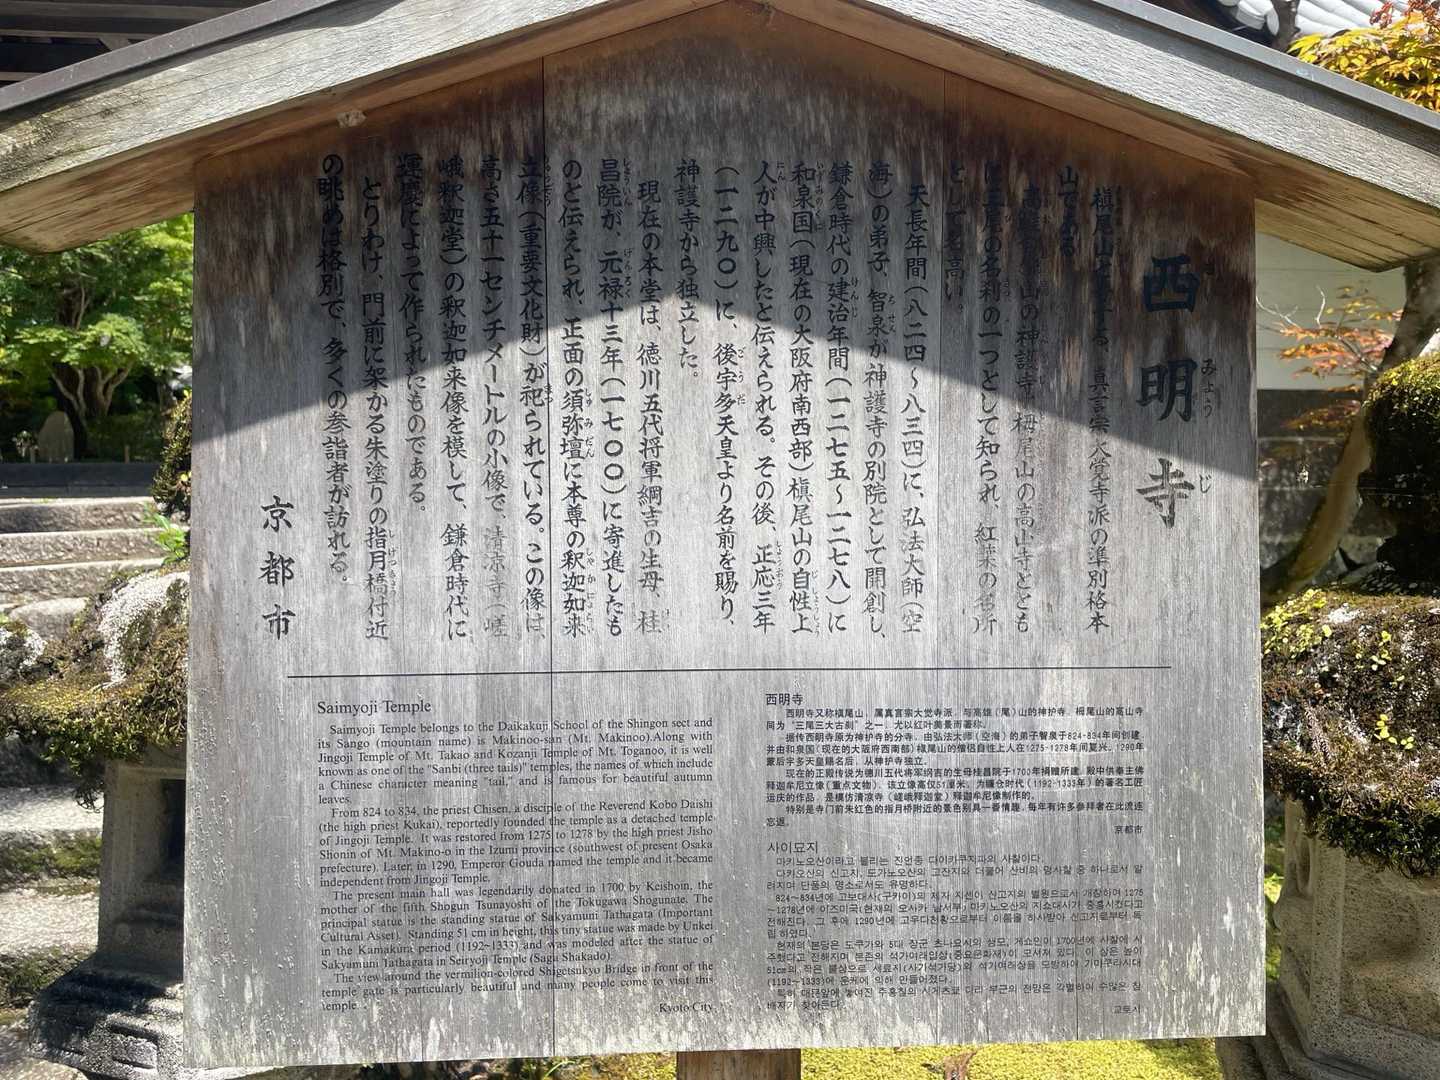 西明寺
さいみょうじ
槇尾山と号する、真言宗大覚寺派の準別格本
山である。
高雄山の神護寺、栂尾山の高山寺ととも
に三尾の名刹の一つとして知られ、紅葉の名所
として名高い。
天長年間(八二四~八三四)に、弘法大師(空
海)の弟子、智泉が神護寺の別院として開創し、
鎌倉時代の建治年間(一二七五~一二七八)に
和泉国(現在の大阪府南西部)槇尾山の自性上
人が中興したと伝えられる。その後、正応三年
(一二九〇)に、後宇多天皇より名前を賜り、
神護寺から独立した。
現在の本堂は、徳川五代将軍綱吉の生母、桂
昌院が、元禄十三年(一七〇〇)に寄進したも
のと伝えられ、正面の須弥壇に本尊の釈迦如来
立像(重要文化財)が祀られている。この像は、
高さ五十一センチメートルの小像で、清凉寺(嵯
峨釈迦堂)の釈迦如来像を模して、鎌倉時代に
運慶によって作られたものである。
とりわけ、門前に架かる朱塗りの指月橋付近
の眺めは格別で、多くの参詣者が訪れる。
京都市
Saimyoji Temple
Saimyoji Temple belongs to the Daikakuji School of the Shingon sect and
its Sango (mountain name) is Makinoo-san (Mt. Makinoo).Along with
Jingoji Temple of Mt. Takao and Kozanji Temple of Mt. Toganoo, it is well
known as one of the "Sanbi (three tails)" temples, the names of which include
a Chinese character meaning "tail," and is famous for beautiful autumn
leaves.
From 824 to 834, the priest Chisen, a disciple of the Reverend Kobo Daishi
(the high priest Kukai), reportedly founded the temple as a detached temple
of Jingoji Temple. It was restored from 1275 to 1278 by the high priest Jisho
Shonin of Mt. Makino-o in the Izumi province (southwest of present Osaka
prefecture). Later, in 1290, Emperor Gouda named the temple and it became
independent from Jingoji Temple.
The present main hall was legendarily donated in 1700 by Keishoin, the
mother of the fifth Shogun Tsunayoshi of the Tokugawa Shogunate. The
principal statue is the standing statue of Sakyamuni Tathagata (Important
Cultural Asset). Standing 51 cm in height, this tiny statue was made by Unkei
in the Kamakura period (1192~1333) and was modeled after the statue of
Sakyamuni Tathagata in Seiryoji Temple (Saga Shakado).
The view around the vermilion-colored Shigetsukyo Bridge in front of the
temple gate is particularly beautiful and many people come to visit this
temple.
Kyoto City
西明寺
西明寺又称槙尾山，属真言宗大觉寺派，与高雄（尾）山的神护寺、栂尾山的高山寺
同为“三尾三大古刹”之一，尤以红叶美景而著称。
据传西明寺原为神护寺的分寺，由弘法大师（空海）的弟子智泉于824-834年间创建
并由和泉国（现在的大阪府西南部）槙尾山的僧侣自性上人在1275-1278年间复兴。1290年
蒙后宇多天皇赐名后，从神护寺独立。
现在的正殿传说为德川五代将军纲吉的生母桂昌院于1700年捐赠所建，殿中供奉主佛
释迦牟尼立像（重点文物）。该立像高仅51厘米，为镰仓时代（1192-1333年）的著名工匠
运庆的作品，是模仿清凉寺（嵯峨释迦堂）释迦牟尼像制作的。
特别是寺门前朱红色的指月桥附近的景色别具一番情趣，每年有许多参拜者在此流连
忘返。
京都市
사이묘지
마키노오산이라고 불리는 진언종 다이카쿠지파의 사찰이다.
다카오산의 신고지, 도가노오산의 고잔지와 더불어 산비의 명사찰 중 하나로서 알
려지며 단풍의 명소로서도 유명하다.
824~834년에 고보대사(구카이)의 제자 지센이 신고지의 별원으로서 개창하여 1275
~1278년에 이즈미국(현재의 오사카 남서부) 마키노오산의 지쇼대사가 중흥시켰다고
전해진다. 그 후에 1290년에 고우다천황으로부터 이름을 하사받아 신고지로부터 독
립 하였다.
현재의 본당은 도쿠가와 5대 장군 츠나요시의 생모, 게쇼인이 1700년에 사찰에 시
주했다고 전해지며 본존의 석가여래입상(중요문화재)이 모셔져 있다. 이 상은 높이
51cm의, 작은 불상으로 세료지(사가석가당)의 석가여래상을 모방하여 가마쿠라시대
(1192~1333)에 운케에 의해 만들어졌다.
특히 대문앞에 놓여진 주홍칠의 시게츠쿄 다리 부근의 전망은 각별하여 수많은 참
배자가 찾아든다.
교토시